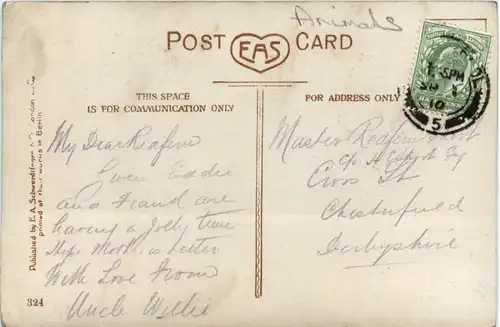 Animals
POST EAS CARD
THIS SPACE
IS FOR COMMUNICATION ONLY
FOR ADDRESS ONLY
My Dear Redfern
Gwen Eadie
and Frank are
having a Jolly time
Hope Mother is better
With Love From
Uncle Willie
Master Redfern
c/o H
Cross St
Chesterfield
Derbyshire
PM
10
5
Published by E. A. Schwerdtfeger & Co. London E.C.
printed at their works in Berlin
324